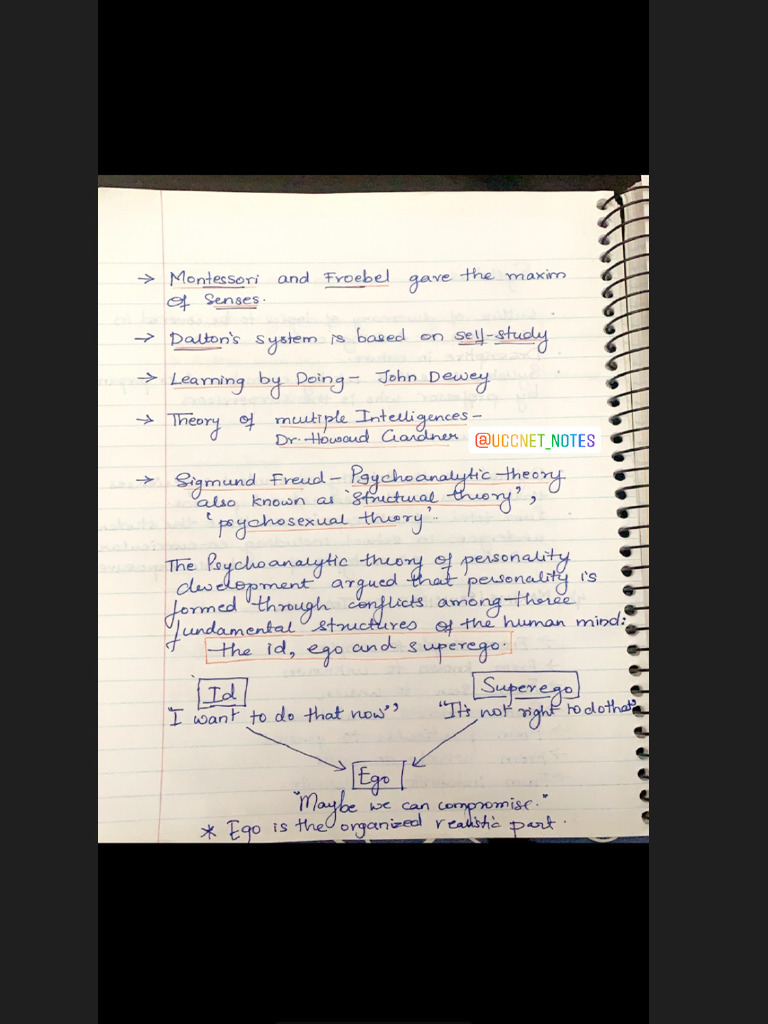 → Montessori and Froebel gave the maxim
of Senses.
→ Dalton's system is based on self-study
→ Learning by Doing - John Dewey
→ Theory of multiple Intelligences -
Dr. Howard Gardner
@UGCNET_NOTES
→ Sigmund Freud - Psychoanalytic theory
also known as 'structural theory',
'psychosexual theory'.
The Psychoanalytic theory of personality
development argued that personality is
formed through conflicts among three
fundamental structures of the human mind:
the id, ego and superego.
Id
Superego
"I want to do that now"
"It's not right to do that"
Ego
"Maybe we can compromise."
* Ego is the organized realistic part.